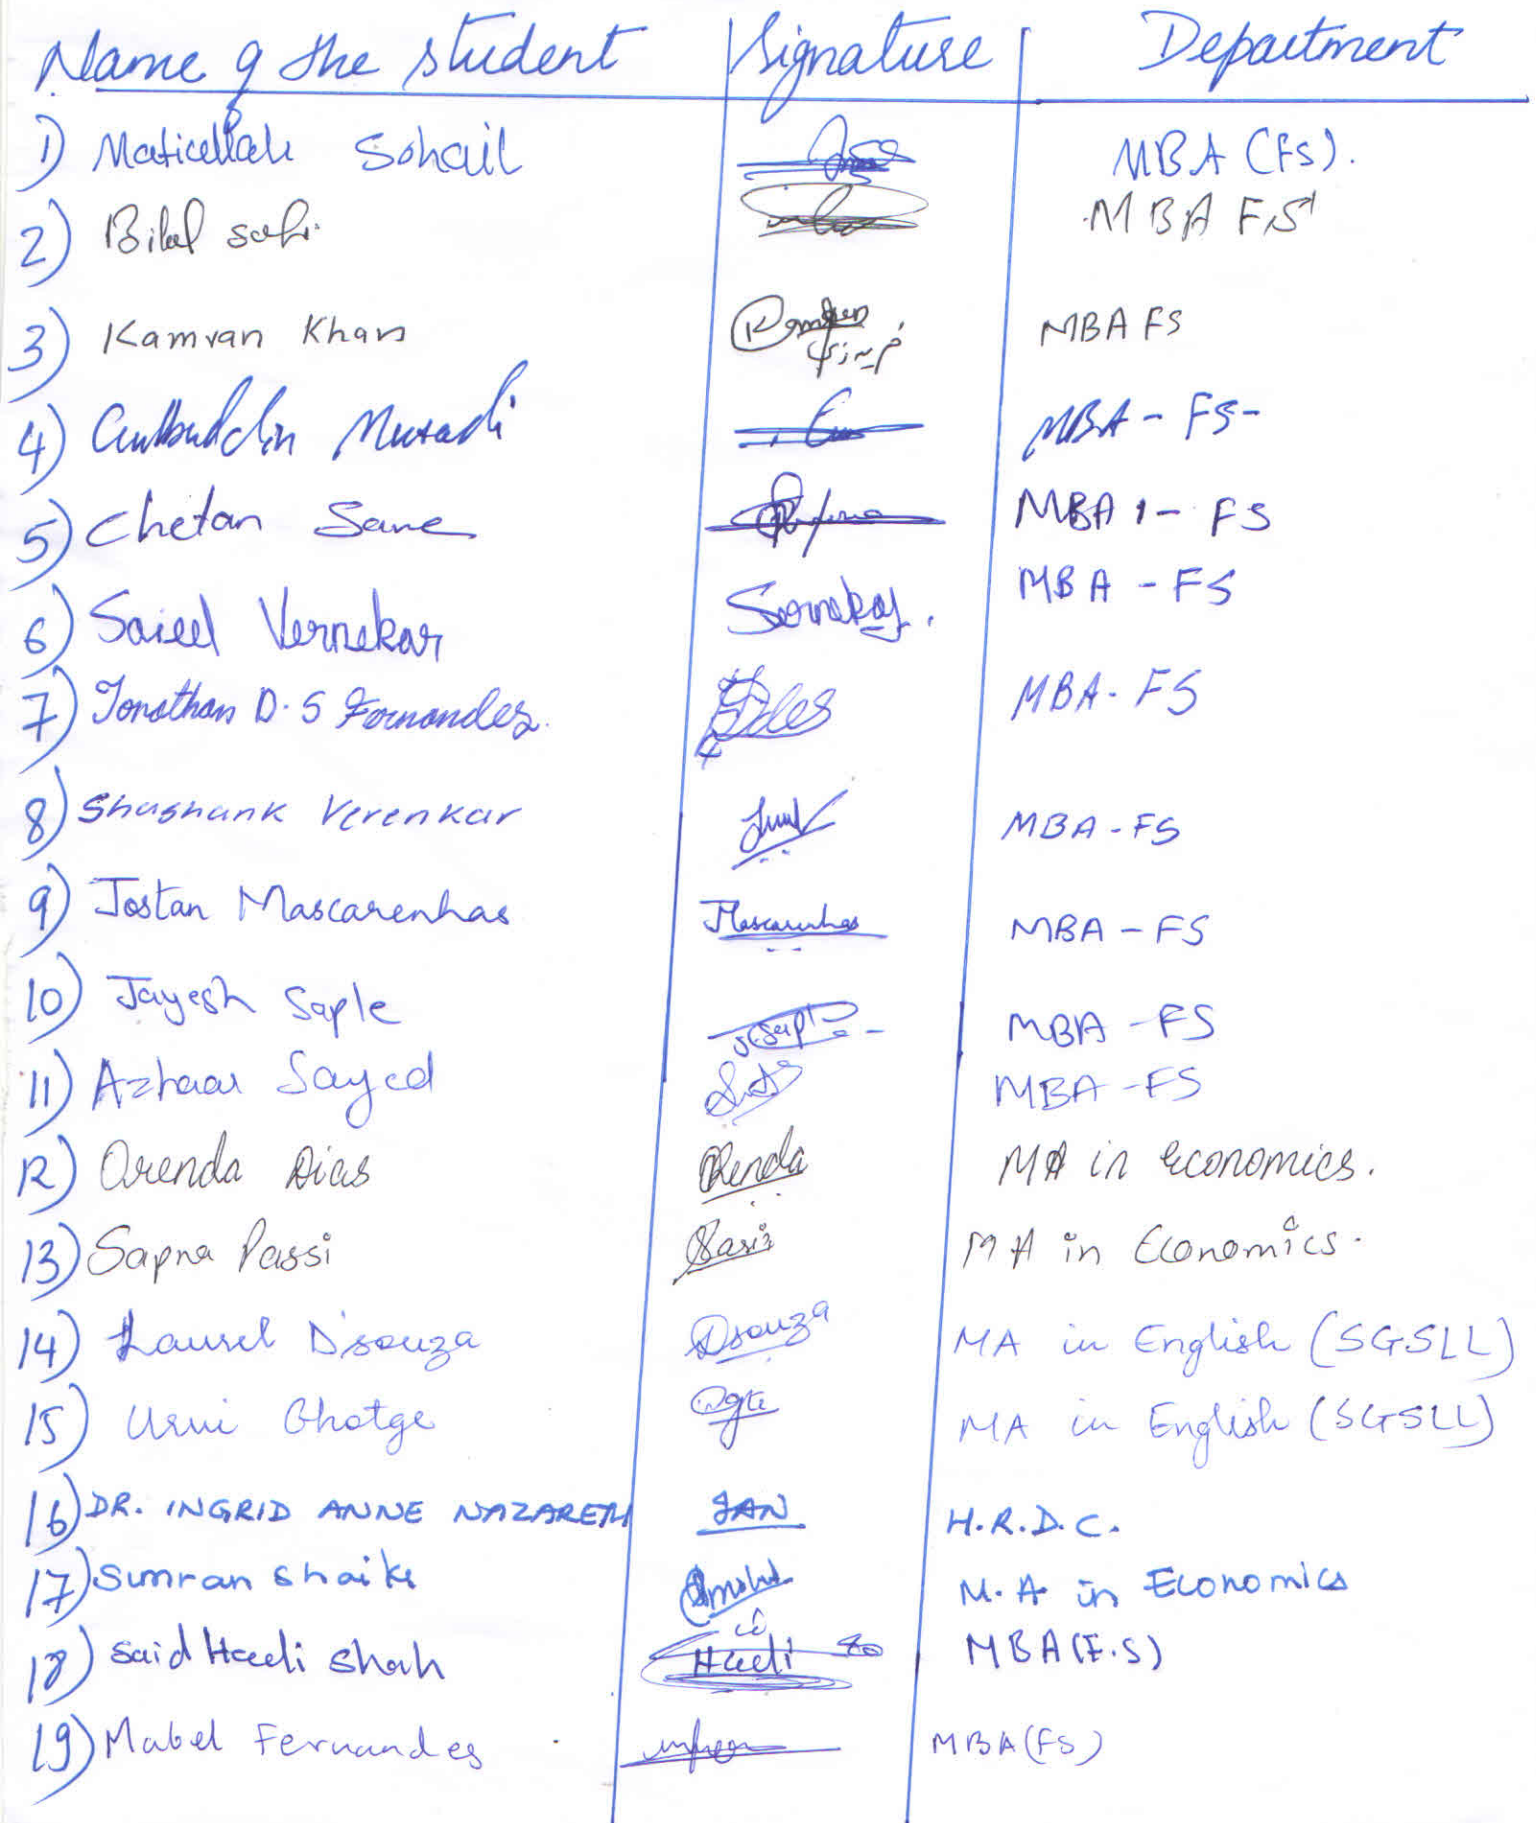 Name of the student Signature Department
1) Matiullah Sohail MBA (FS).
2) Bilal safi MBA FS
3) Kamran Khan MBA FS
4) Muradi MBA - FS-
5) Chetan Sane MBA 1 - FS
6) Saieel Vernekar Sernekar. MBA - FS
7) Jonathan D.S Fernandes. MBA - FS
8) Shashank Verenkar MBA - FS
9) Jostan Mascarenhas JMascarenhas MBA - FS
10) Jayesh Saple JSaple MBA - FS
11) Azhaar Sayed MBA - FS
12) Orenda Dias Orenda MA in Economics.
13) Sapna Passi MA in Economics.
14) Laurel D'souza Dsouza MA in English (SGSLL)
15) Urvi Ghotge MA in English (SGSLL)
16) DR. INGRID ANNE NAZARETH IAN H.R.D.C.
17) Simran Shaikh M.A. in Economics
18) Said Hadi Shah Hadi MBA (F.S)
19) Mabel Fernandes MBA (FS)